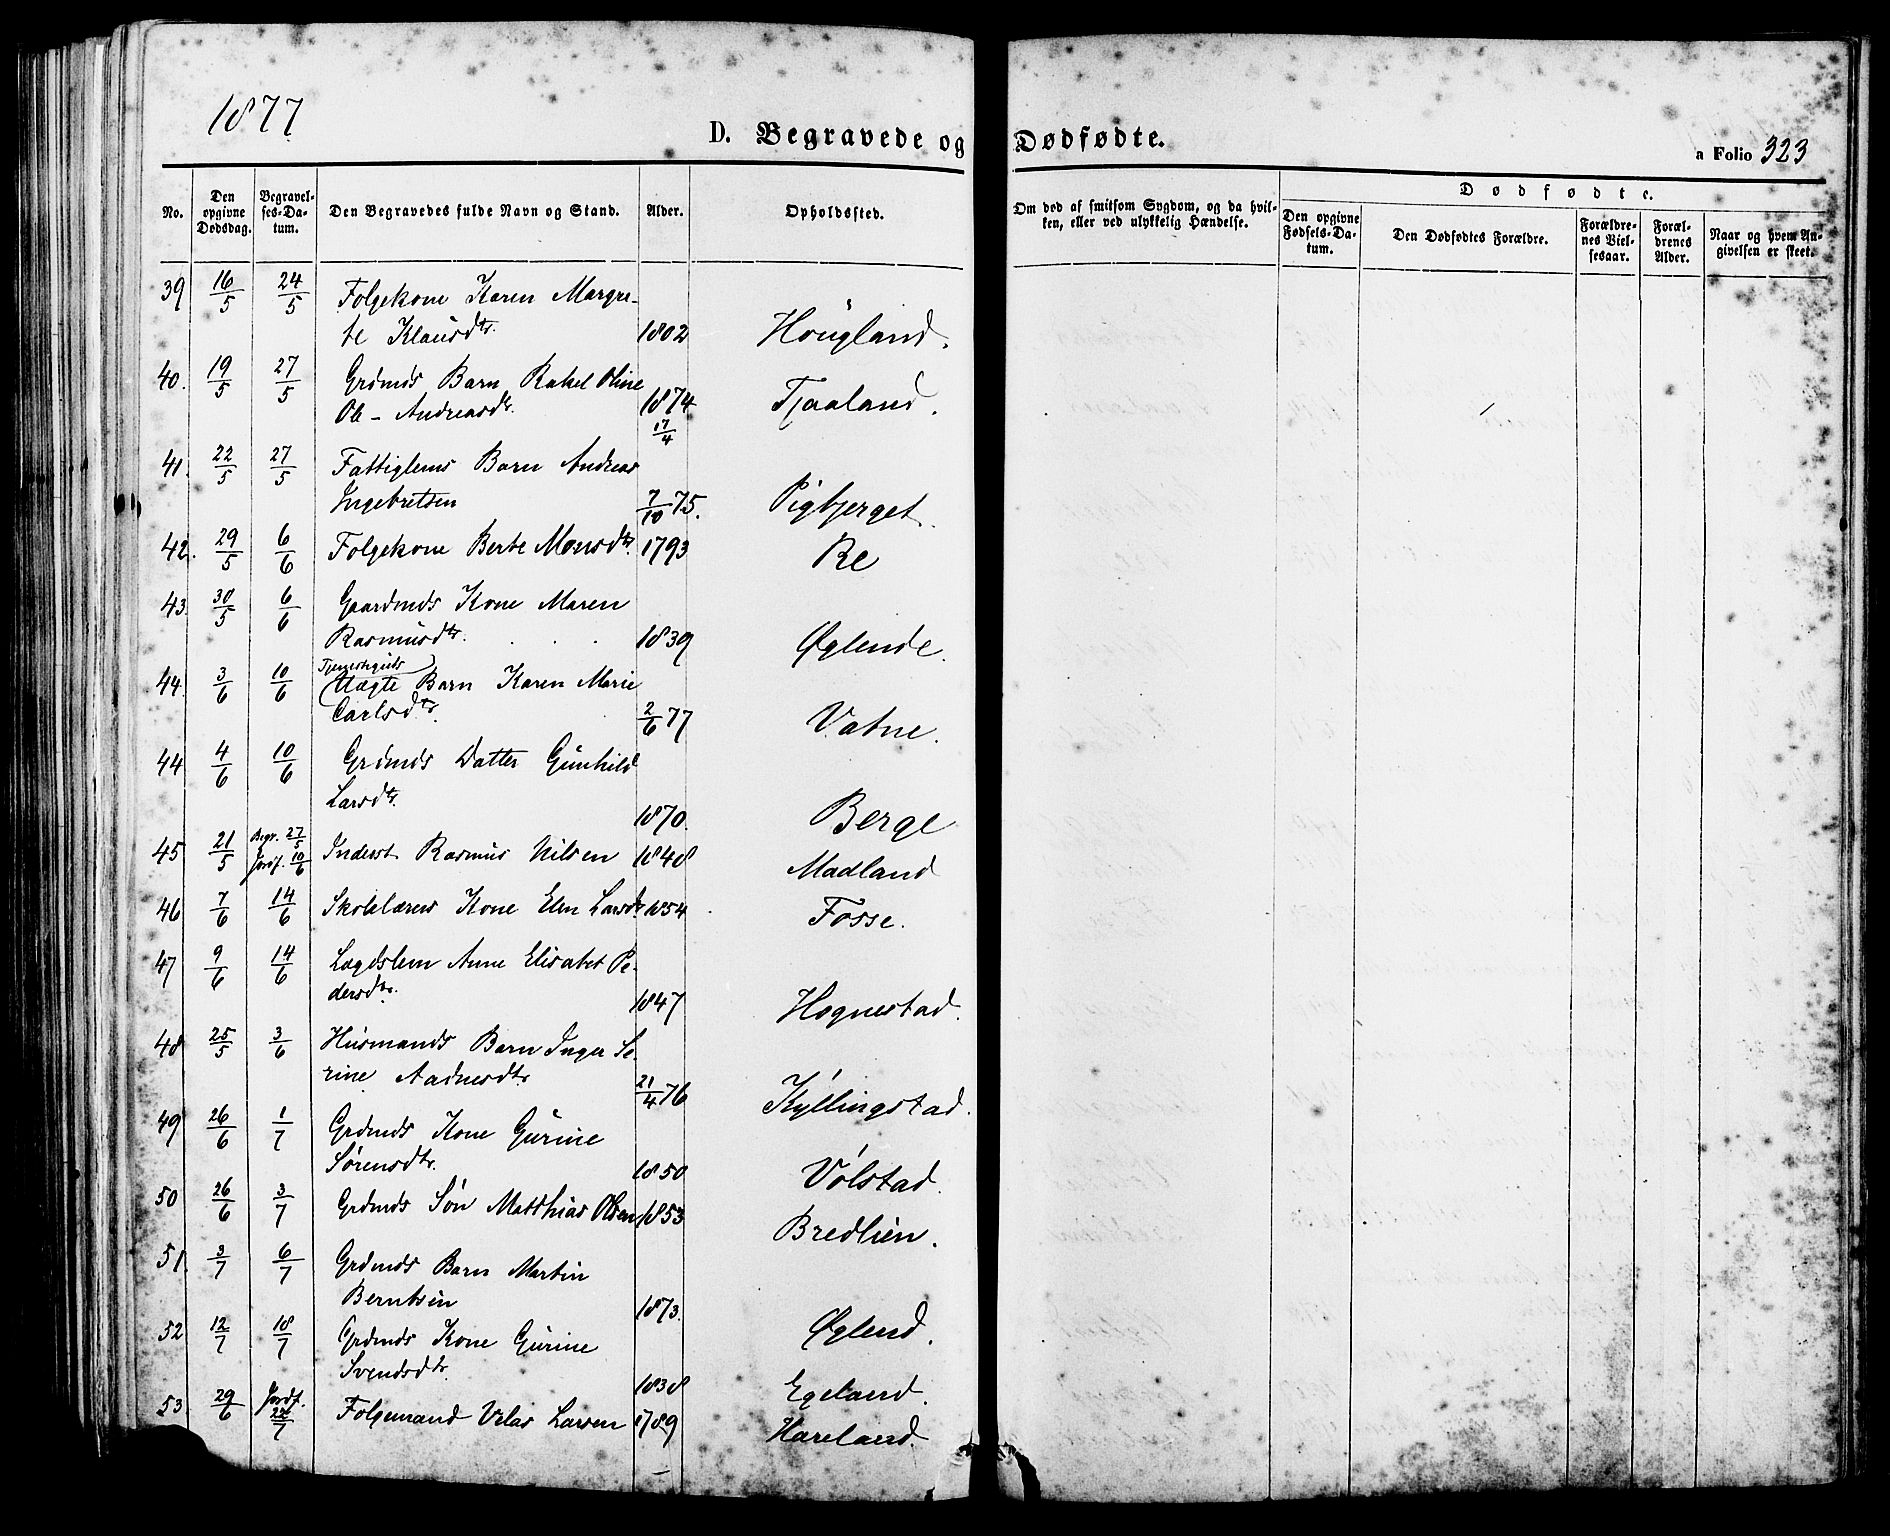 1877
D. Begravede og Dødfødte.
a Folio 323
No.
Den opgivne Dødsdag.
Begravelses-Datum.
Den Begravedes fulde Navn og Stand.
Alder.
Opholdssted.
Om død af smitsom Sygdom, og da hvilken, eller ved ulykkelig Hændelse.
Dødfødte.
Den opgivne Fødsels-Datum.
Den Dødfødtes Forældre.
Forældrenes Vielsesaar.
Forældrenes Alder.
Naar og hvem Angivelsen er skeet.
39 16/5 24/5 Folgekone Karen Margre-
te Klausdtr. 1802 Hougland.
40. 19/5 27/5 Grdmds Barn Rakel Oline
Ole-Andreasdtr. 1874 17/4 Tjaaland.
41. 22/5 27/5 Fattiglems Barn Andreas
Ingebretsen 7/10 75. Pigbjerget.
42. 29/5 6/6 Folgekone Berte Monsdtr. 1793 Re
43. 30/5 6/6 Gaardmds Kone Maren
Rasmusdtr. 1839 Øglende.
Tjenestepiges
44. 3/6 10/6 Uægte Barn Karen Marie
Carlsdtr. 2/6 77 Vatne.
44 4/6 10/6 Grdmds Datter Gunhild
Larsdtr. 1870. Berge
45 21/5 Begr. 27/5 Jordf. 10/6 Inderst Rasmus Nilsen 1848 Madland
46 7/6 14/6 Skolelærers Kone Elen Larsdtr. 1854 Fosse.
47 9/6 14/6 Lægdslem Anne Elisabet Pe-
dersdtr. 1847 Hognestad.
48 25/5 3/6 Husmands Barn Inger Se-
rine Aadnesdtr. 21/4 76 Kyllingstad.
49 26/6 1/7 Grdmds Kone Gurine
Sørensdtr. 1850 Volstad.
50 26/6 3/7 Grdmds Søn Matthias Olsen 1853 Bredlien.
51. 3/7 6/7 Grdmds Barn Martin
Berntsen 1873. Øglend.
52 12/7 18/7 Grdmds Kone Gurine
Svendsdtr. 1838 Egeland.
53 29/6 Jordf. 22/7 Folgemand Velas Larsen 1789 Hareland.